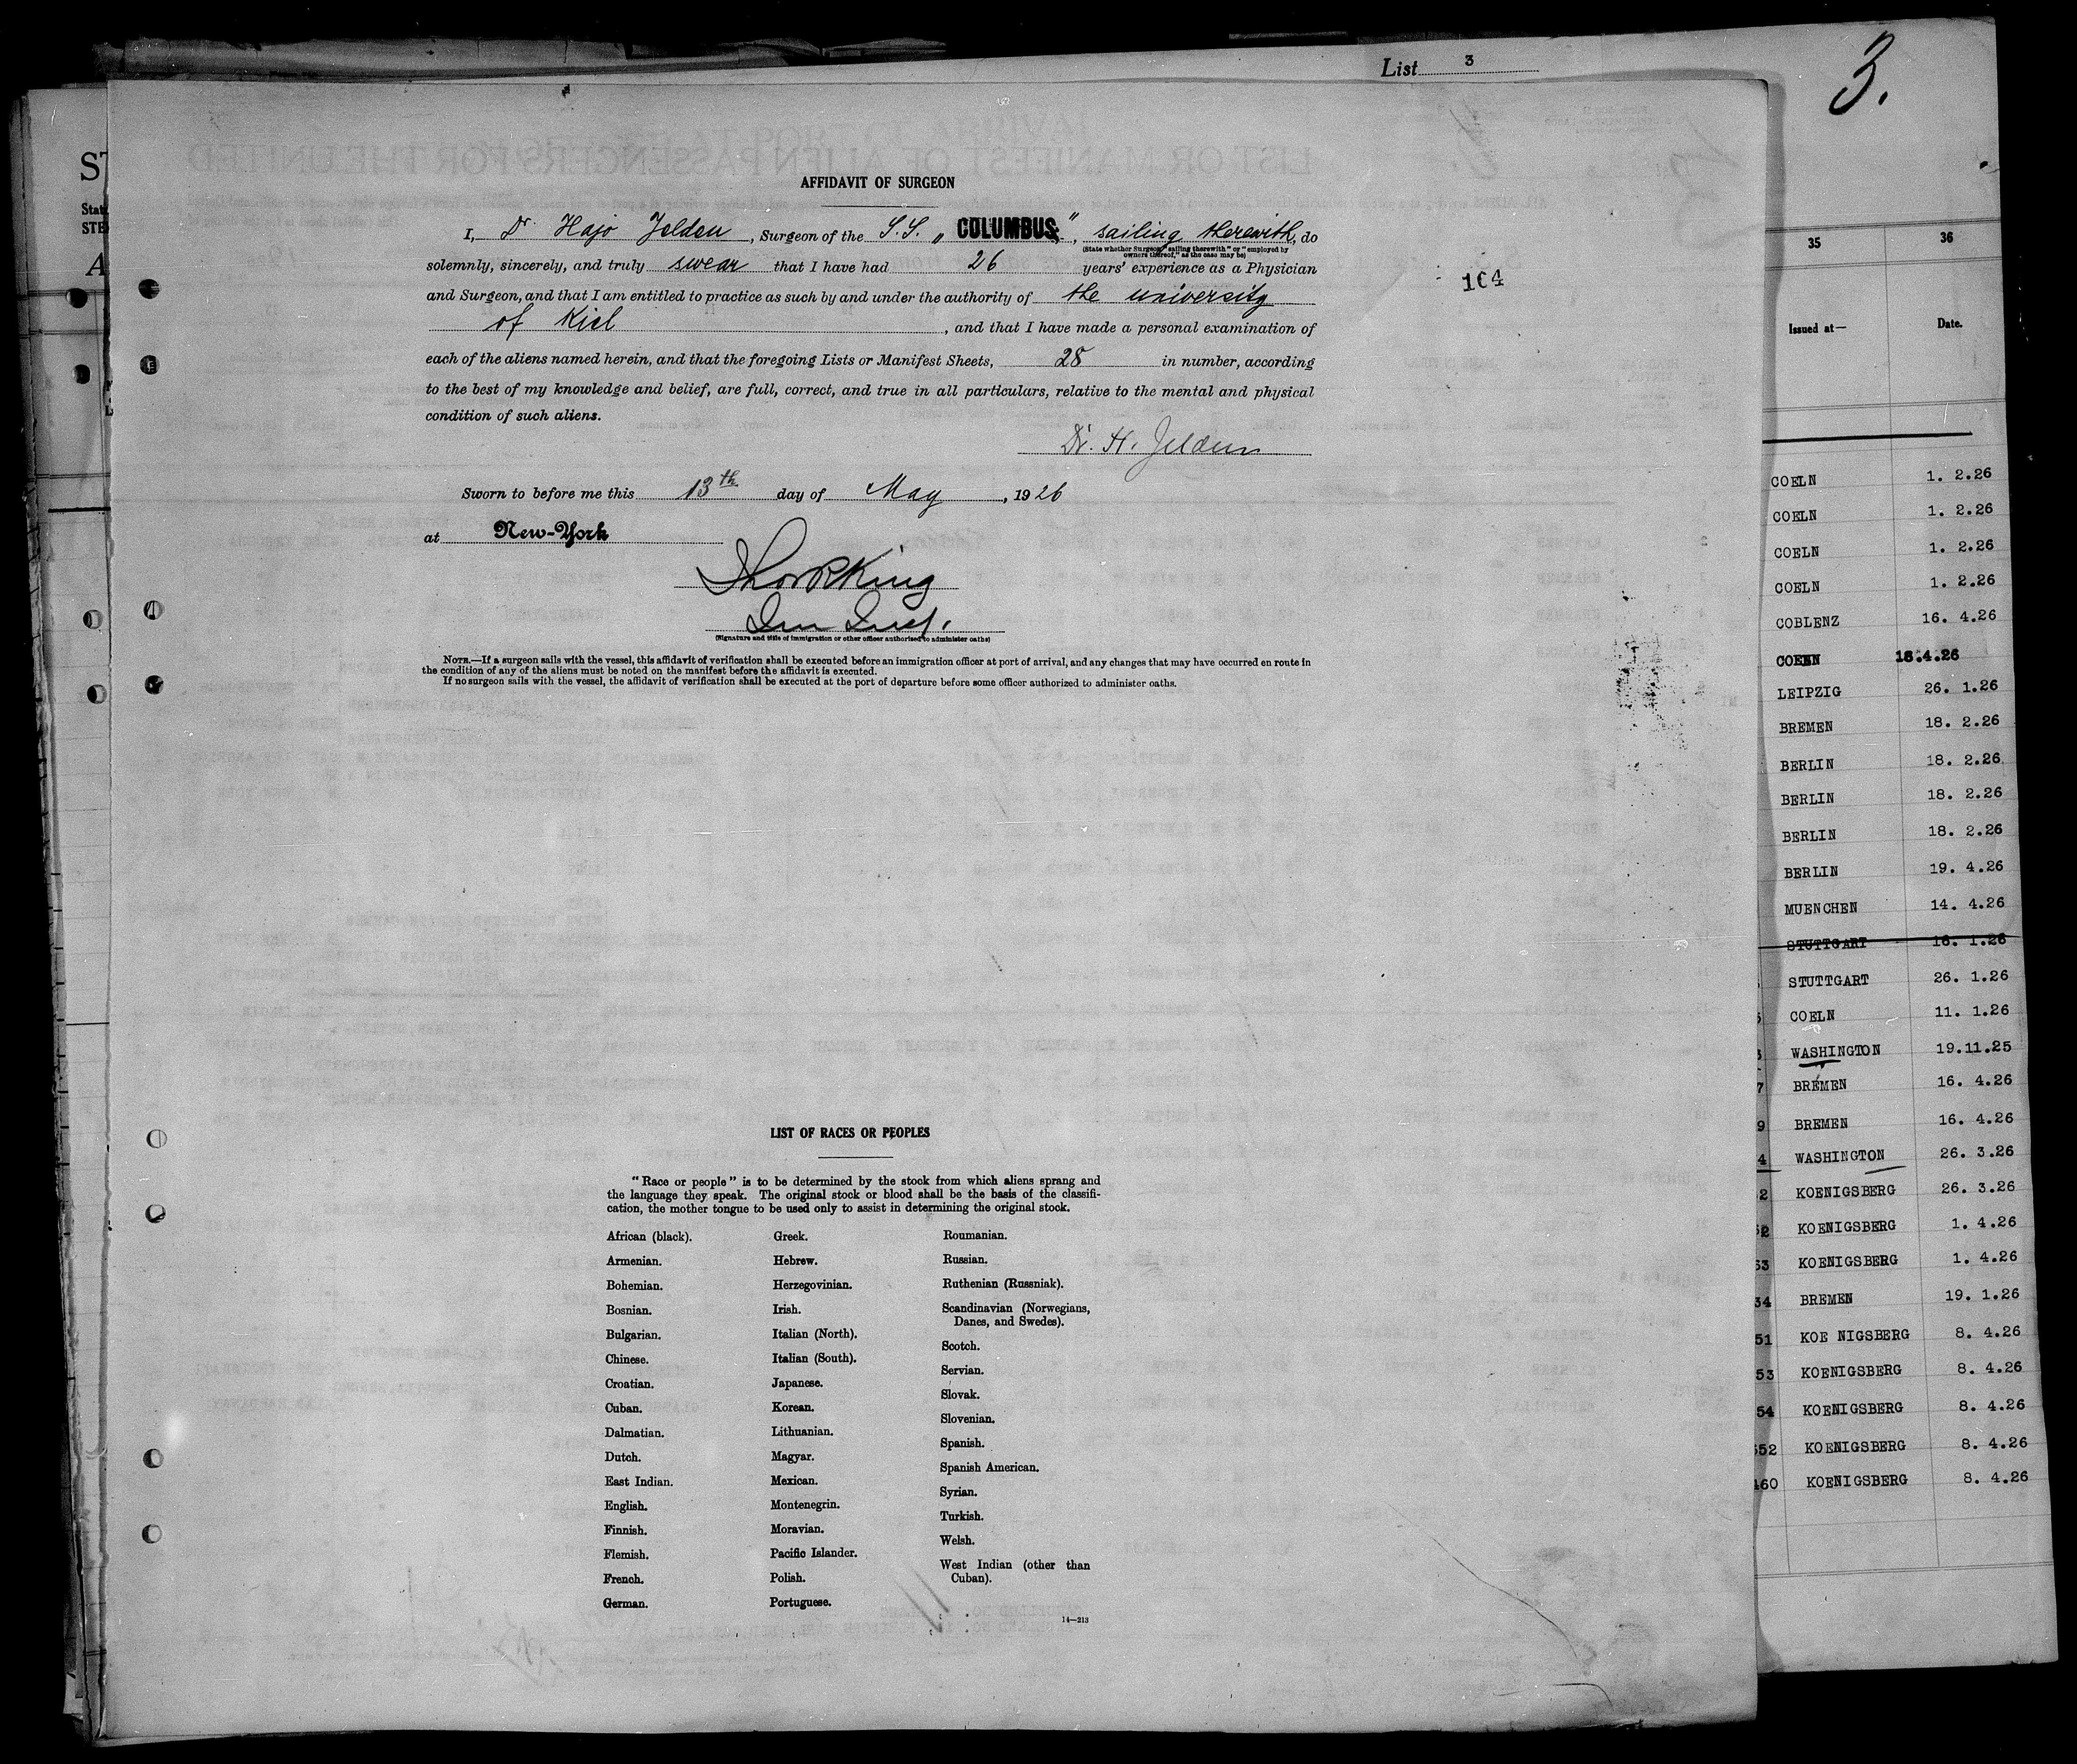 List 3
3.
AFFIDAVIT OF SURGEON
I, Dr Hajo Jelden, Surgeon of the S.S. „COLUMBUS", sailing therewith, do
(State whether Surgeon "sailing therewith" or "employed by
owners thereof," as the case may be)
solemnly, sincerely, and truly swear that I have had 26 years' experience as a Physician
and Surgeon, and that I am entitled to practice as such by and under the authority of the university
of Kiel, and that I have made a personal examination of
each of the aliens named herein, and that the foregoing Lists or Manifest Sheets, 28 in number, according
to the best of my knowledge and belief, are full, correct, and true in all particulars, relative to the mental and physical
condition of such aliens.
Dr. H. Jelden
Sworn to before me this 13th day of May, 1926
at New-York
Imm Insp.
(Signature and title of immigration or other officer authorised to administer oaths)
NOTE.—If a surgeon sails with the vessel, this affidavit of verification shall be executed before an immigration officer at port of arrival, and any changes that may have occurred en route in
the condition of any of the aliens must be noted on the manifest before the affidavit is executed.
If no surgeon sails with the vessel, the affidavit of verification shall be executed at the port of departure before some officer authorized to administer oaths.
104
LIST OF RACES OR PEOPLES
"Race or people" is to be determined by the stock from which aliens sprang and
the language they speak. The original stock or blood shall be the basis of the classifi-
cation, the mother tongue to be used only to assist in determining the original stock.
African (black).
Armenian.
Bohemian.
Bosnian.
Bulgarian.
Chinese.
Croatian.
Cuban.
Dalmatian.
Dutch.
East Indian.
English.
Finnish.
Flemish.
French.
German.
Greek.
Hebrew.
Herzegovinian.
Irish.
Italian (North).
Italian (South).
Japanese.
Korean.
Lithuanian.
Magyar.
Mexican.
Montenegrin.
Moravian.
Pacific Islander.
Polish.
Portuguese.
Roumanian.
Russian.
Ruthenian (Russniak).
Scandinavian (Norwegians,
Danes, and Swedes).
Scotch.
Servian.
Slovak.
Slovenian.
Spanish.
Spanish American.
Syrian.
Turkish.
Welsh.
West Indian (other than
Cuban).
14—213
35 36
Issued at— Date.
COELN 1. 2.26
COELN 1. 2.26
COELN 1. 2.26
COELN 1. 2.26
COBLENZ 16. 4.26
COELN 16.4.26
LEIPZIG 26. 1.26
BREMEN 18. 2.26
BERLIN 18. 2.26
BERLIN 18. 2.26
BERLIN 18. 2.26
BERLIN 19. 4.26
MUENCHEN 14. 4.26
STUTTGART 16. 1.26
STUTTGART 26. 1.26
COELN 11. 1.26
WASHINGTON 19.11.25
7 BREMEN 16. 4.26
9 BREMEN 16. 4.26
4 WASHINGTON 26. 3.26
2 KOENIGSBERG 26. 3.26
52 KOENIGSBERG 1. 4.26
53 KOENIGSBERG 1. 4.26
34 BREMEN 19. 1.26
51 KOE NIGSBERG 8. 4.26
53 KOENIGSBERG 8. 4.26
54 KOENIGSBERG 8. 4.26
552 KOENIGSBERG 8. 4.26
460 KOENIGSBERG 8. 4.26